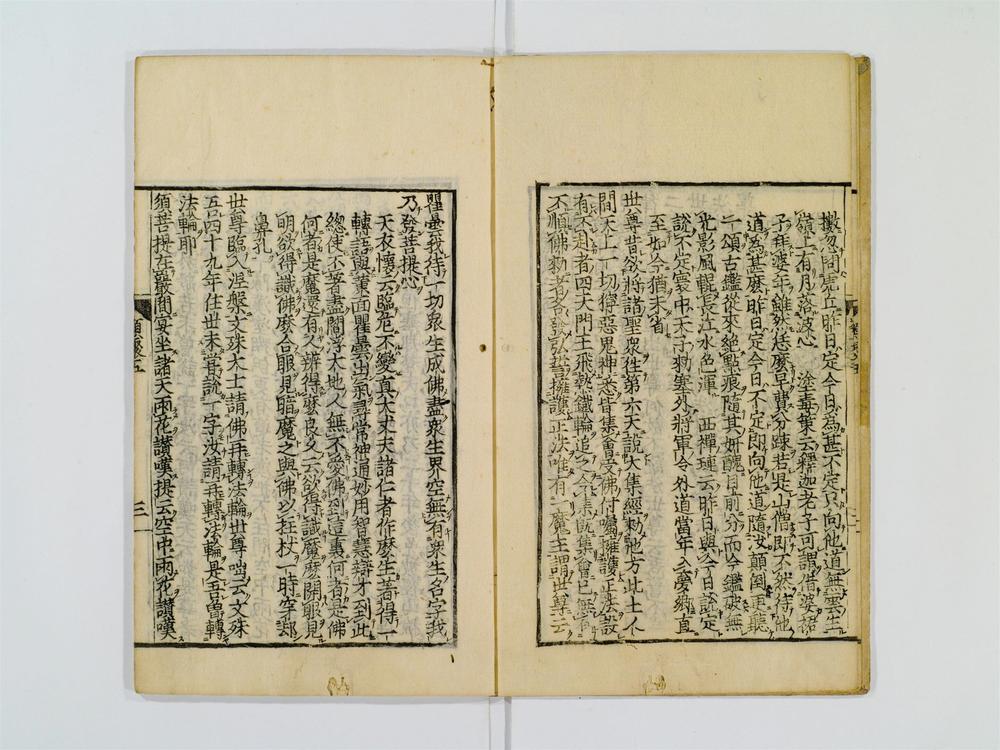 撒忽問雲丘昨日定今日為甚不定只向他道無雲生
嶺上有月落波心　塗毒策云釋迦老子可謂借婆裙
子拜婆年雖然恁麼早費分踈若是山僧即不然待他
道為甚麼昨日定今日不定即向他道隨汝顛倒更聽
一頌古鑑從來絕點痕隨其妍醜目前分而今鑑破無
光影風輥長江水色渾　西禪璉云昨日與今日說定
說不定寰中天子勅塞外將軍令外道當年入愛鄉直
至如今猶未省
世尊昔欲將諸聖衆往第六天說大集經勅他方此土人
間天上一切獰惡鬼神悉皆集會受佛付囑擁護正法設
有不赴者四天門王飛熱鐵輪追之令集既集會已無有
不順佛勅者各發弘誓擁護正法唯有一魔王謂世尊云
瞿曇我待一切衆生成佛盡衆生界空無有衆生名字我
乃發菩提心
天衣懷云臨危不變真大丈夫諸仁者作麼生著得一
轉語與黃面瞿曇出氣尋常神通妙用智慧辯才到此
總使不著盡閻浮大地人無不愛佛到這裏何者是佛
何者是魔還有人辨得麼良久云欲得識魔麼開眼見
明欲得識佛麼合眼見暗魔之與佛以拄杖一時穿却
鼻孔
世尊臨入涅槃文殊大士請佛再轉法輪世尊咄云文殊
吾四十九年住世未嘗說一字汝請再轉法輪是吾曽轉
法輪耶
須菩提在巖間宴坐諸天雨花讃嘆提云空中雨花讃嘆
三